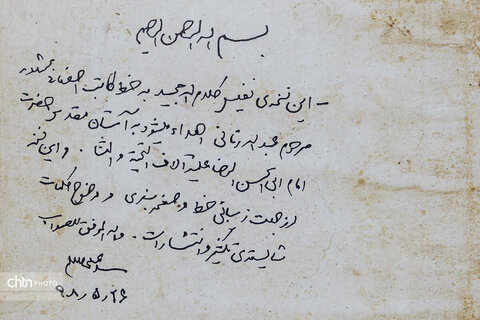 بسم الله الرحمن الرحیم
- این نسخه‌ی نفیس کلام الله مجید به خط کاتب
مرحوم عبدالله یزدی اهداء میشود به آستان مقدس حضرت
امام ابی الحسن الرضا علیه آلاف التحیة و الثناء . و این نسخه
از جهت زیبائی خط و صفحه بندی و وضوح کلمات
شایسته‌ی تکثیر و انتشار است . والله الموفق للصواب
۲۶ ر ۵ ر ۹۸
chtn PHOTO